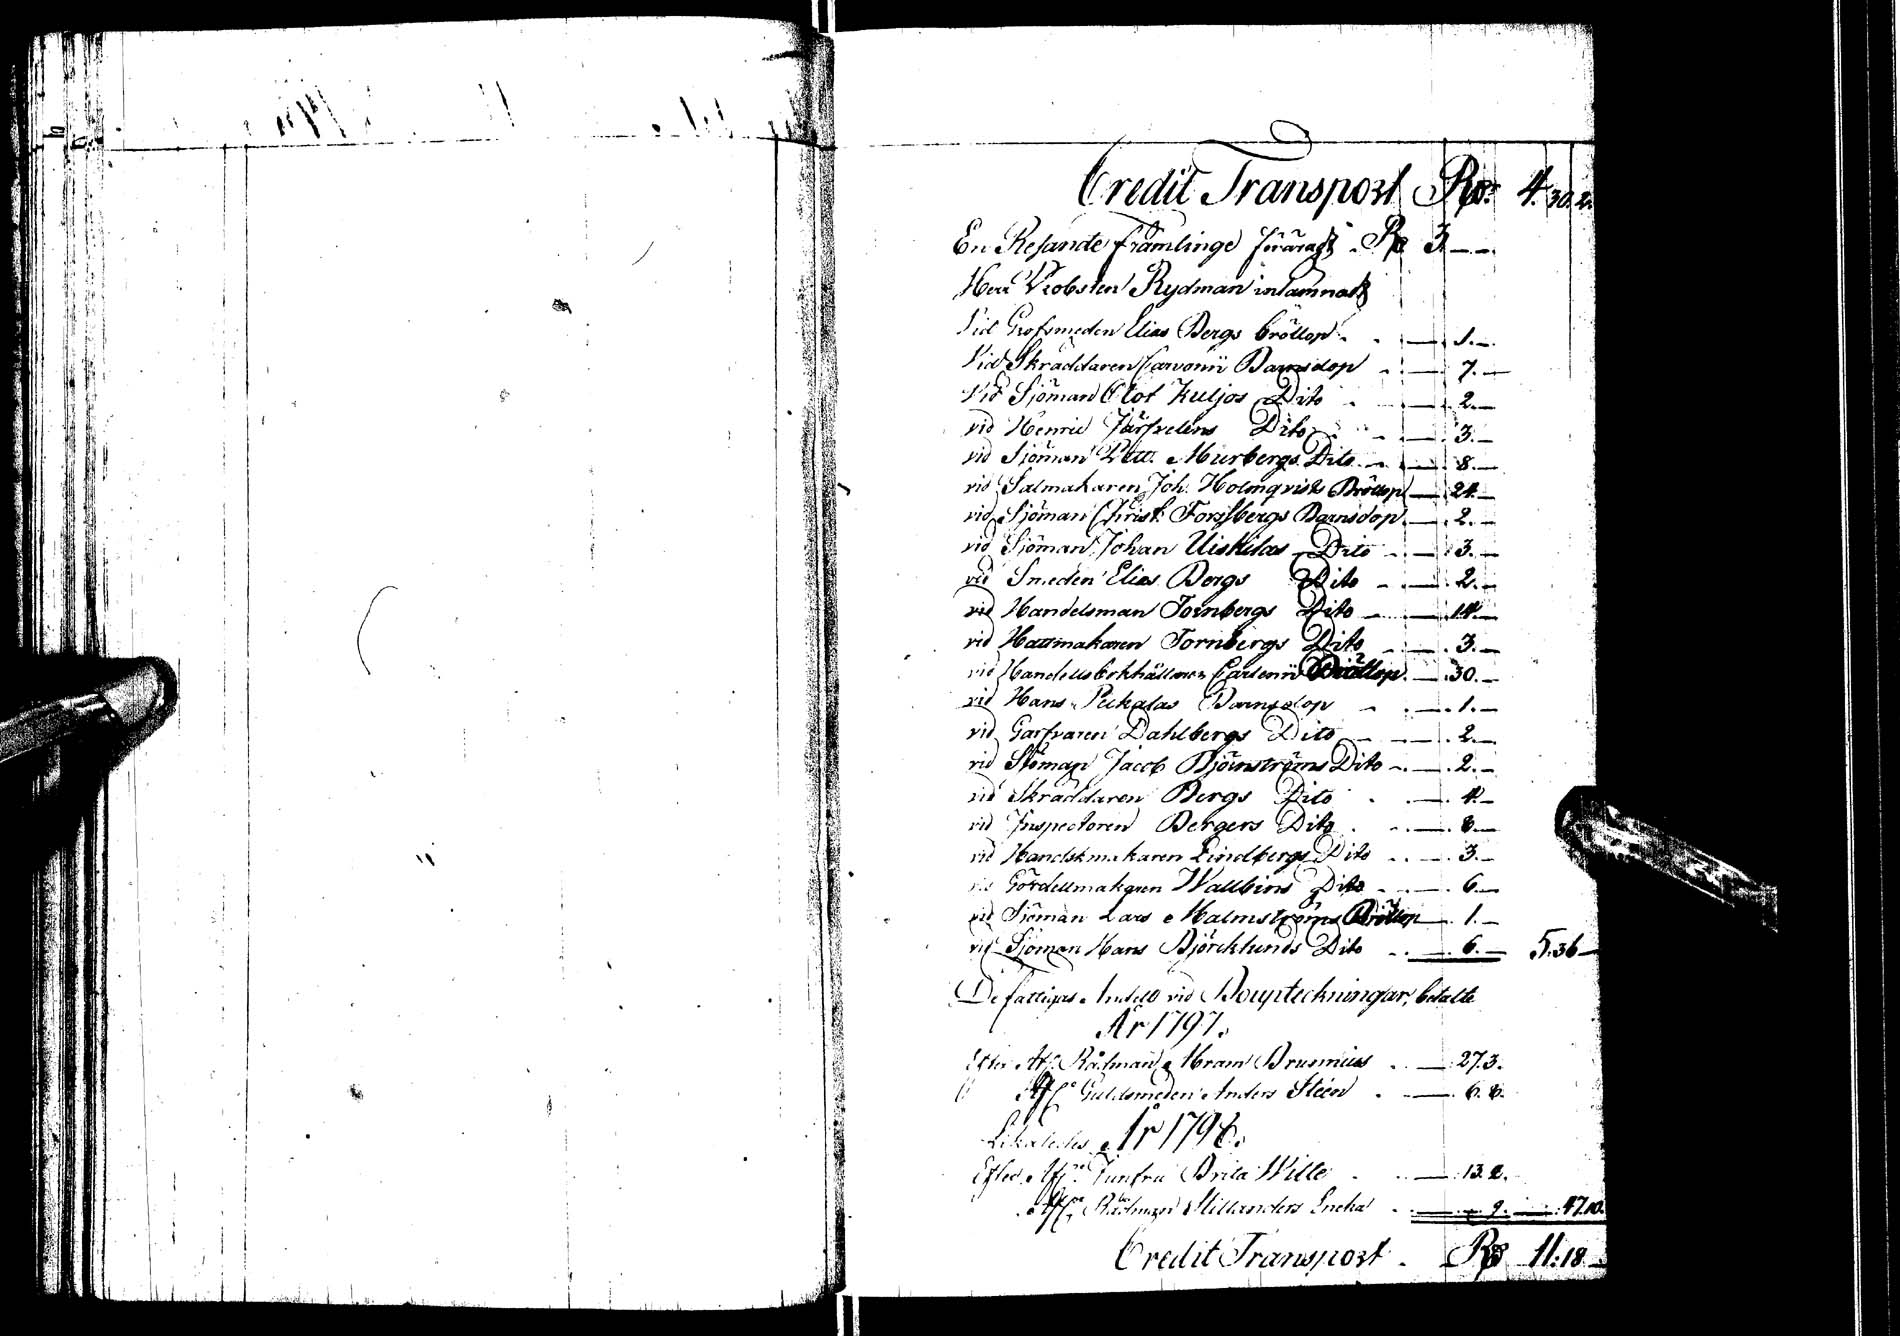 Credit Transport Rd: 4. 30. 2.
En Resande främlinge förärat Rd 3. — —
Herr Probsten Rydman inlämnat
Vid Grofsmeden Elias Bergs bröllop — 1. —
Vid Skräddaren Barnsdop — 7. —
Vid Sjöman Olof Kuljos Dito — 2. —
vid Henric Järfvelins Dito — 3. —
vid Sjöman Pett. Murbergs Dito — 8. —
vid Salmakaren Joh. Holmqvists Bröllop — 24. —
vid Sjöman Christ. Forssbergs Barnsdop — 2. —
vid Sjöman Johan Uiskilas Dito — 3. —
vid Smeden Elias Bergs Dito — 2. —
vid Handelsman Tornbergs Dito — 14. —
vid Hattmakaren Tornbergs Dito — 3. —
vid Handels bokhållaren Carlenii Bröllop — 30. —
vid Hans Pukalas Barnsdop — 1. —
vid Garfvaren Dahlbergs Dito — 2. —
vid Sjöman Jacob Björnströms Dito — 2. —
vid Skräddaren Bergs Dito — 4. —
vid Inspectoren Bergers Dito — 8. —
vid Handskmakaren Lindbergs Dito — 3. —
vid Gördellmakaren Wallbins Dito — 6. —
vid Sjöman Lars Malmströms Bröllop — 1. —
vid Sjöman Hans Björcklunds Dito — 6. — 5. 36 —
De fattigas Andell vid Boupteckningar, betalte
År 1797.
Efter Afl: Rådman Abram Brunnius — 27. 3.
Afl: Guldsmeden Anders Steen — 6. 8.
Likaledes År 1798.
Efter Afl: Junfru Brita Wille — 13. 2.
Afl: Rådman Encka — 9. — 47. 10.
Credit Transport Rd 11: 18 —